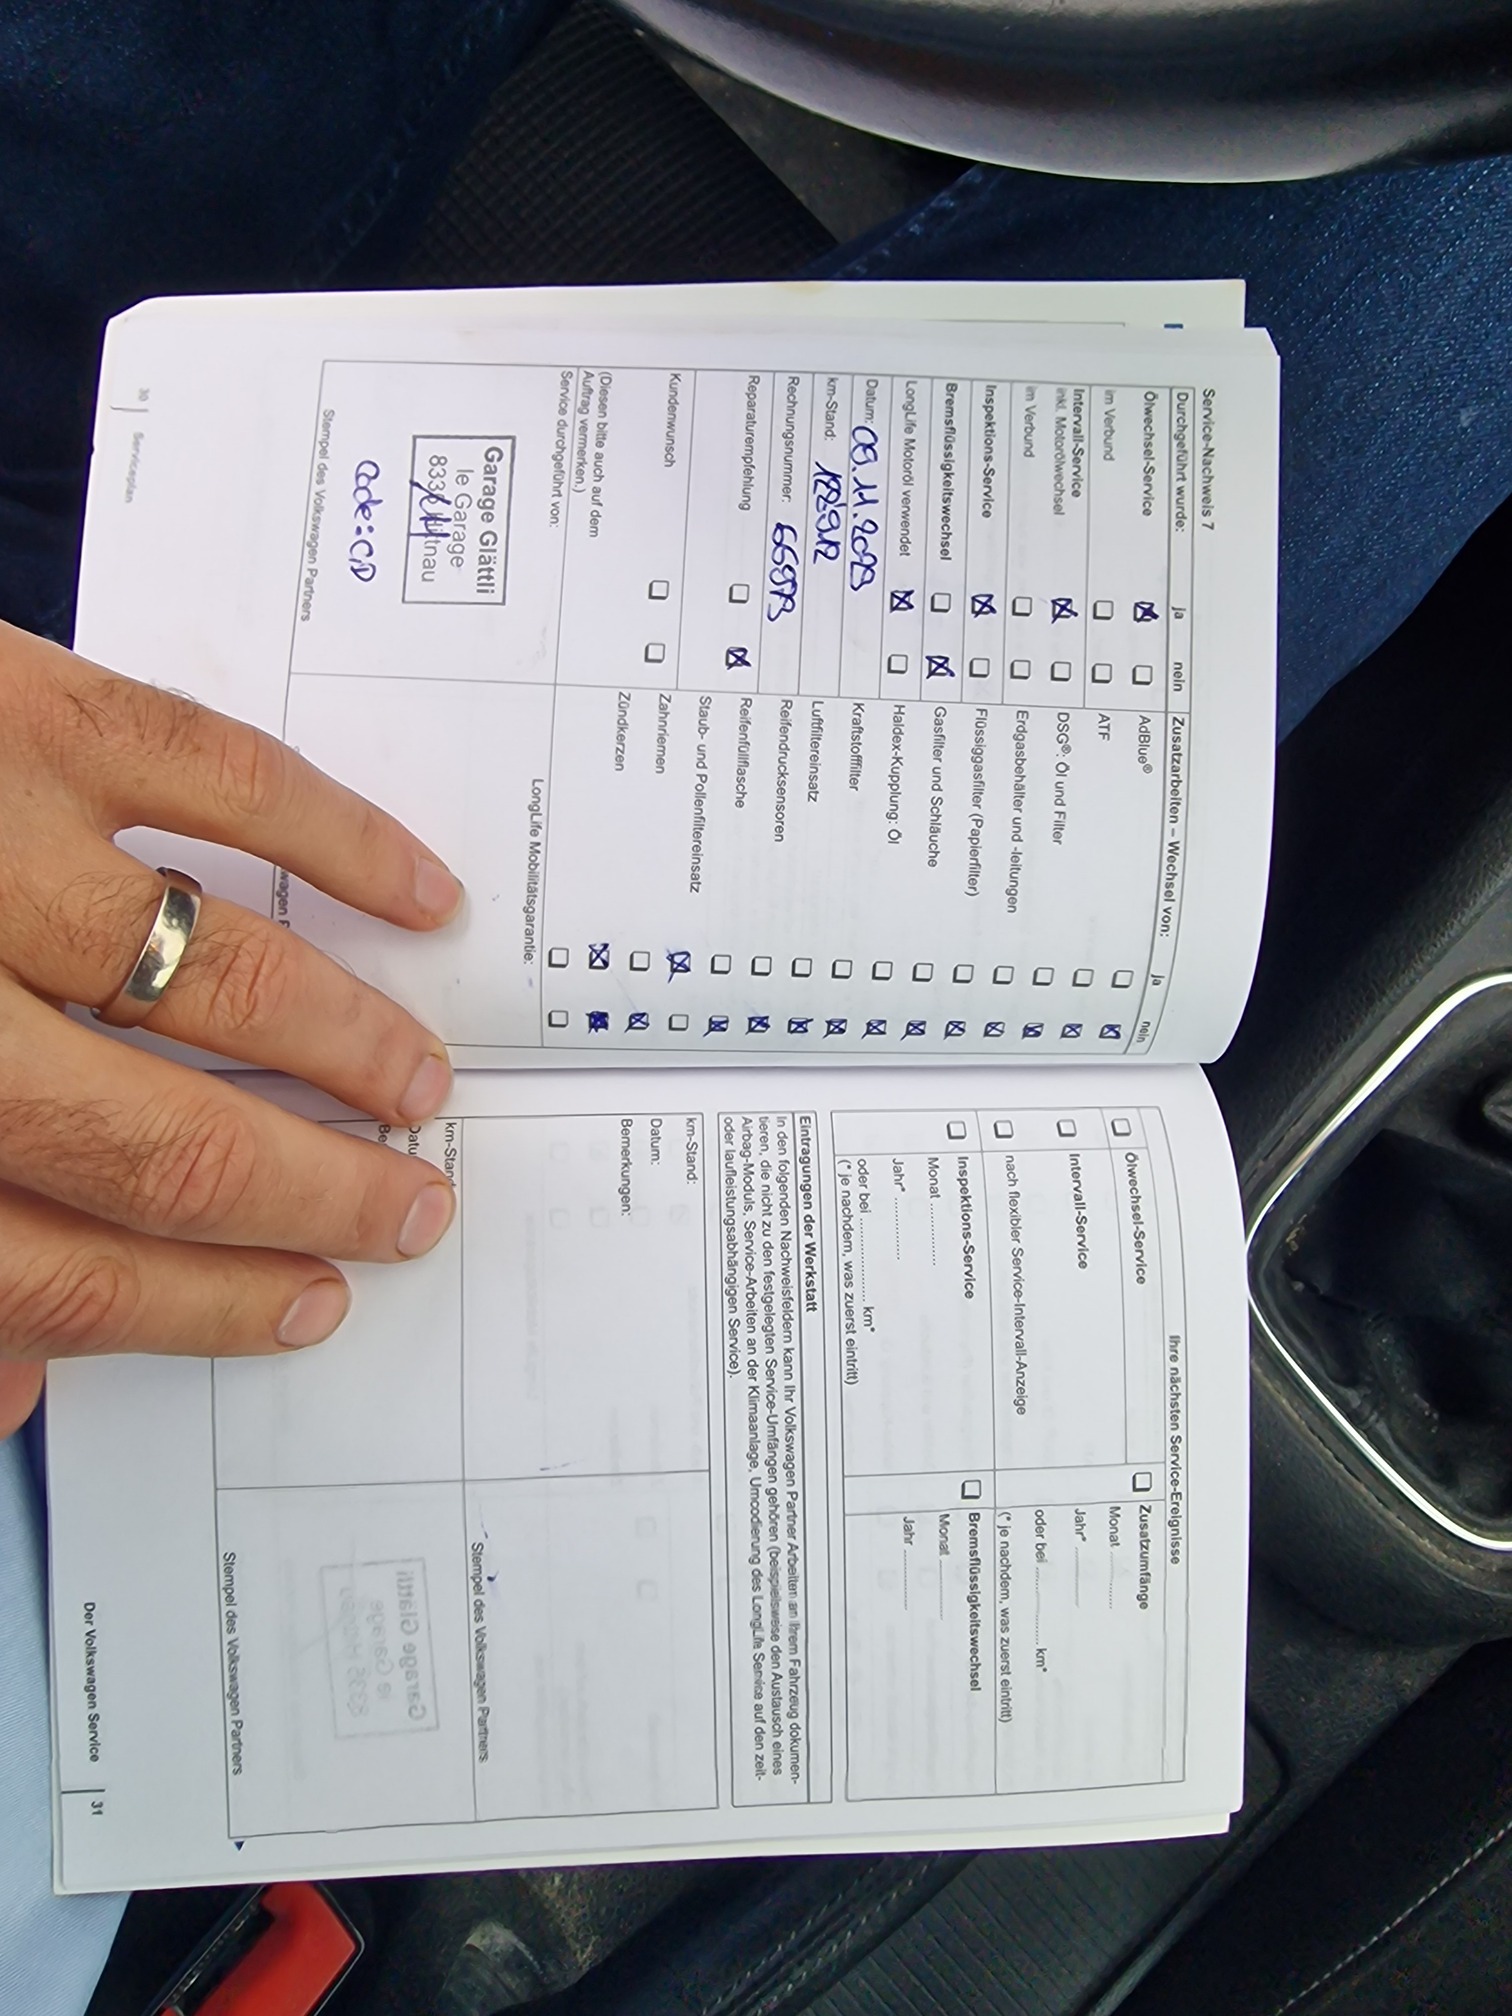 Service-Nachweis 7
Durchgeführt wurde: ja nein
Ölwechsel-Service
im Verbund
Intervall-Service
inkl. Motorölwechsel
im Verbund
Inspektions-Service
Bremsflüssigkeitswechsel
LongLife Motoröl verwendet
Datum:
km-Stand:
Rechnungsnummer:
Reparaturempfehlung
Kundenwunsch
(Diesen bitte auch auf dem
Auftrag vermerken.)
Service durchgeführt von:
Garage Glättli
le Garage
Code: CiD
Stempel des Volkswagen Partners
30 | Serviceplan
Zusatzarbeiten – Wechsel von: ja nein
AdBlue®
ATF
DSG®: Öl und Filter
Erdgasbehälter und -leitungen
Flüssiggasfilter (Papierfilter)
Gasfilter und Schläuche
Haldex-Kupplung: Öl
Kraftstofffilter
Luftfiltereinsatz
Reifendrucksensoren
Reifenfüllflasche
Staub- und Pollenfiltereinsatz
Zahnriemen
Zündkerzen
LongLife Mobilitätsgarantie:
Ihre nächsten Service-Ereignisse
Ölwechsel-Service
Intervall-Service
nach flexibler Service-Intervall-Anzeige
Inspektions-Service
Monat ............
Jahr* ............
oder bei ................ km*
(* je nachdem, was zuerst eintritt)
Zusatzumfänge
Monat ............
Jahr* ............
oder bei ................ km*
(* je nachdem, was zuerst eintritt)
Bremsflüssigkeitswechsel
Monat ............
Jahr ............
Eintragungen der Werkstatt
In den folgenden Nachweisfeldern kann Ihr Volkswagen Partner Arbeiten an Ihrem Fahrzeug dokumen-
tieren, die nicht zu den festgelegten Service-Umfängen gehören (beispielsweise den Austausch eines
Airbag-Moduls, Service-Arbeiten an der Klimaanlage, Umcodierung des LongLife Service auf den zeit-
oder laufleistungsabhängigen Service).
km-Stand:
Datum:
Bemerkungen:
Stempel des Volkswagen Partners
km-Stand
Stempel des Volkswagen Partners
Der Volkswagen Service | 31